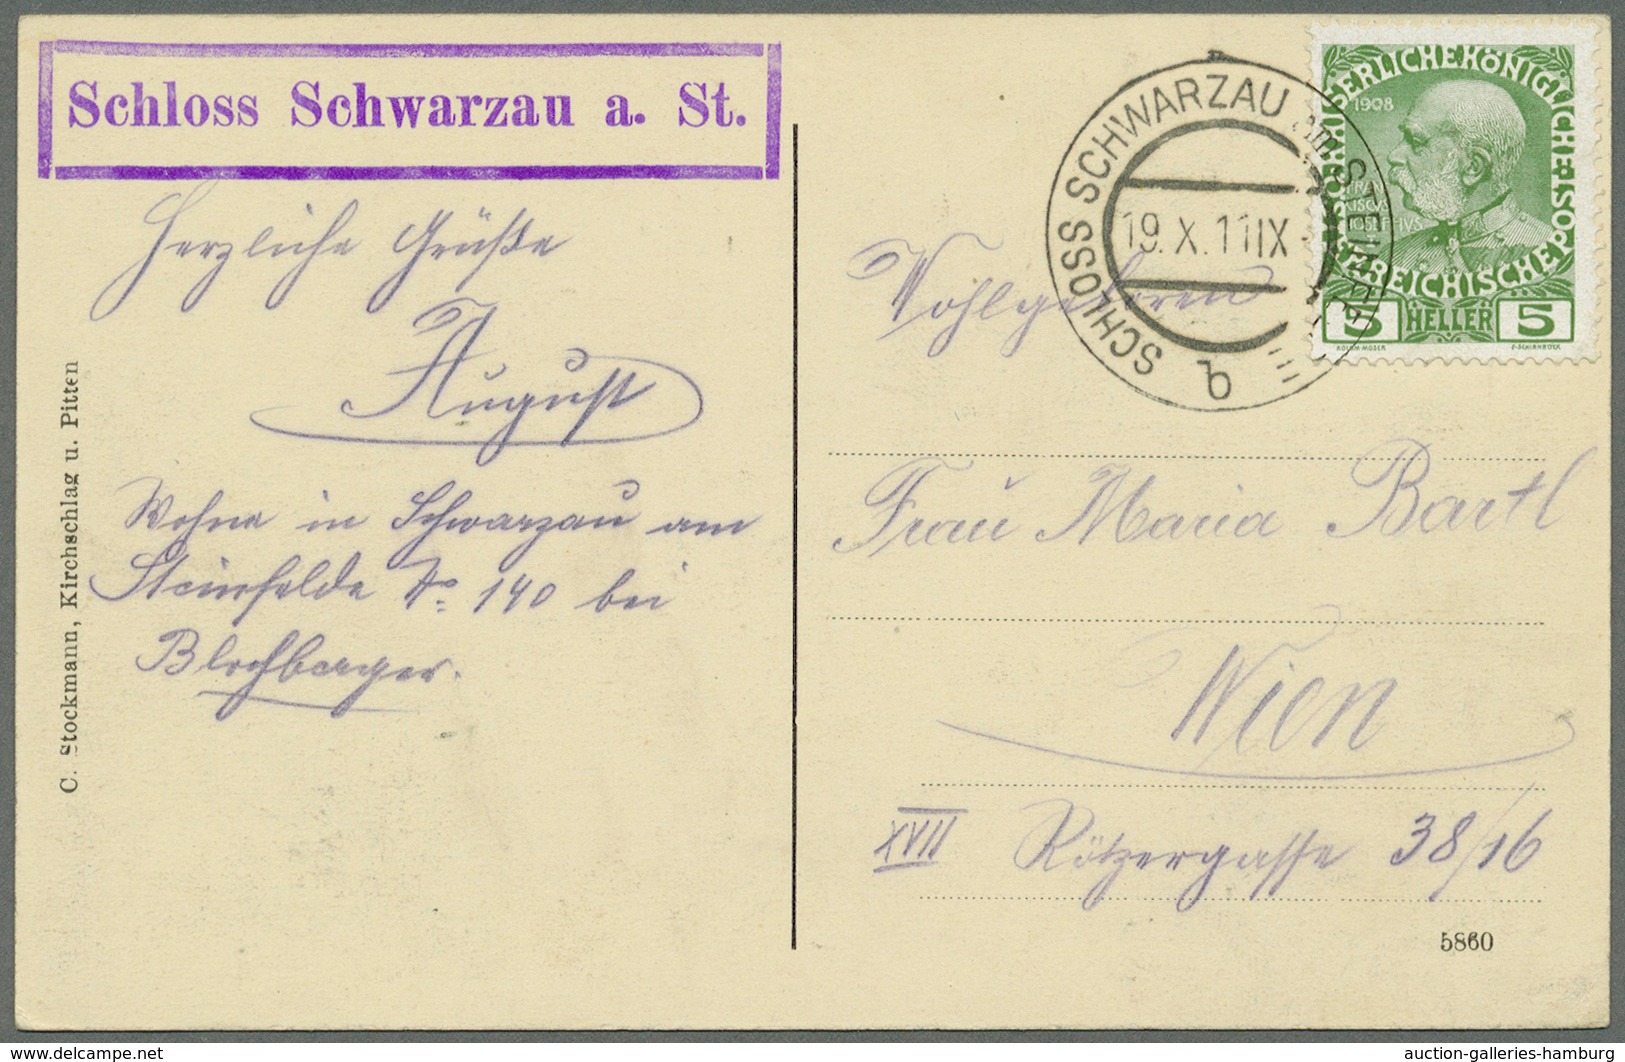 Schloss Schwarzau a. St.
Herzliche Grüße
August
Wohne in Schwarzau am
Steinfelde No 140 bei
C. Stockmann, Kirchschlag u. Pitten
SCHLOSS SCHWARZAU am STEINFELD
19.X.11 IX
b
KAISERLICHE KÖNIGLICHE ÖSTERREICHISCHE POST
1908
FRAN
CISCVS
IOSEPHVS
5 HELLER 5
KOLOM·MOSER F·SCHIRNBÖCK
Wohlgeboren
Frau Maria Bartl
Wien
XVII Rötzergasse 38/16
5860
auction-galleries-hamburg
www.delcampe.net